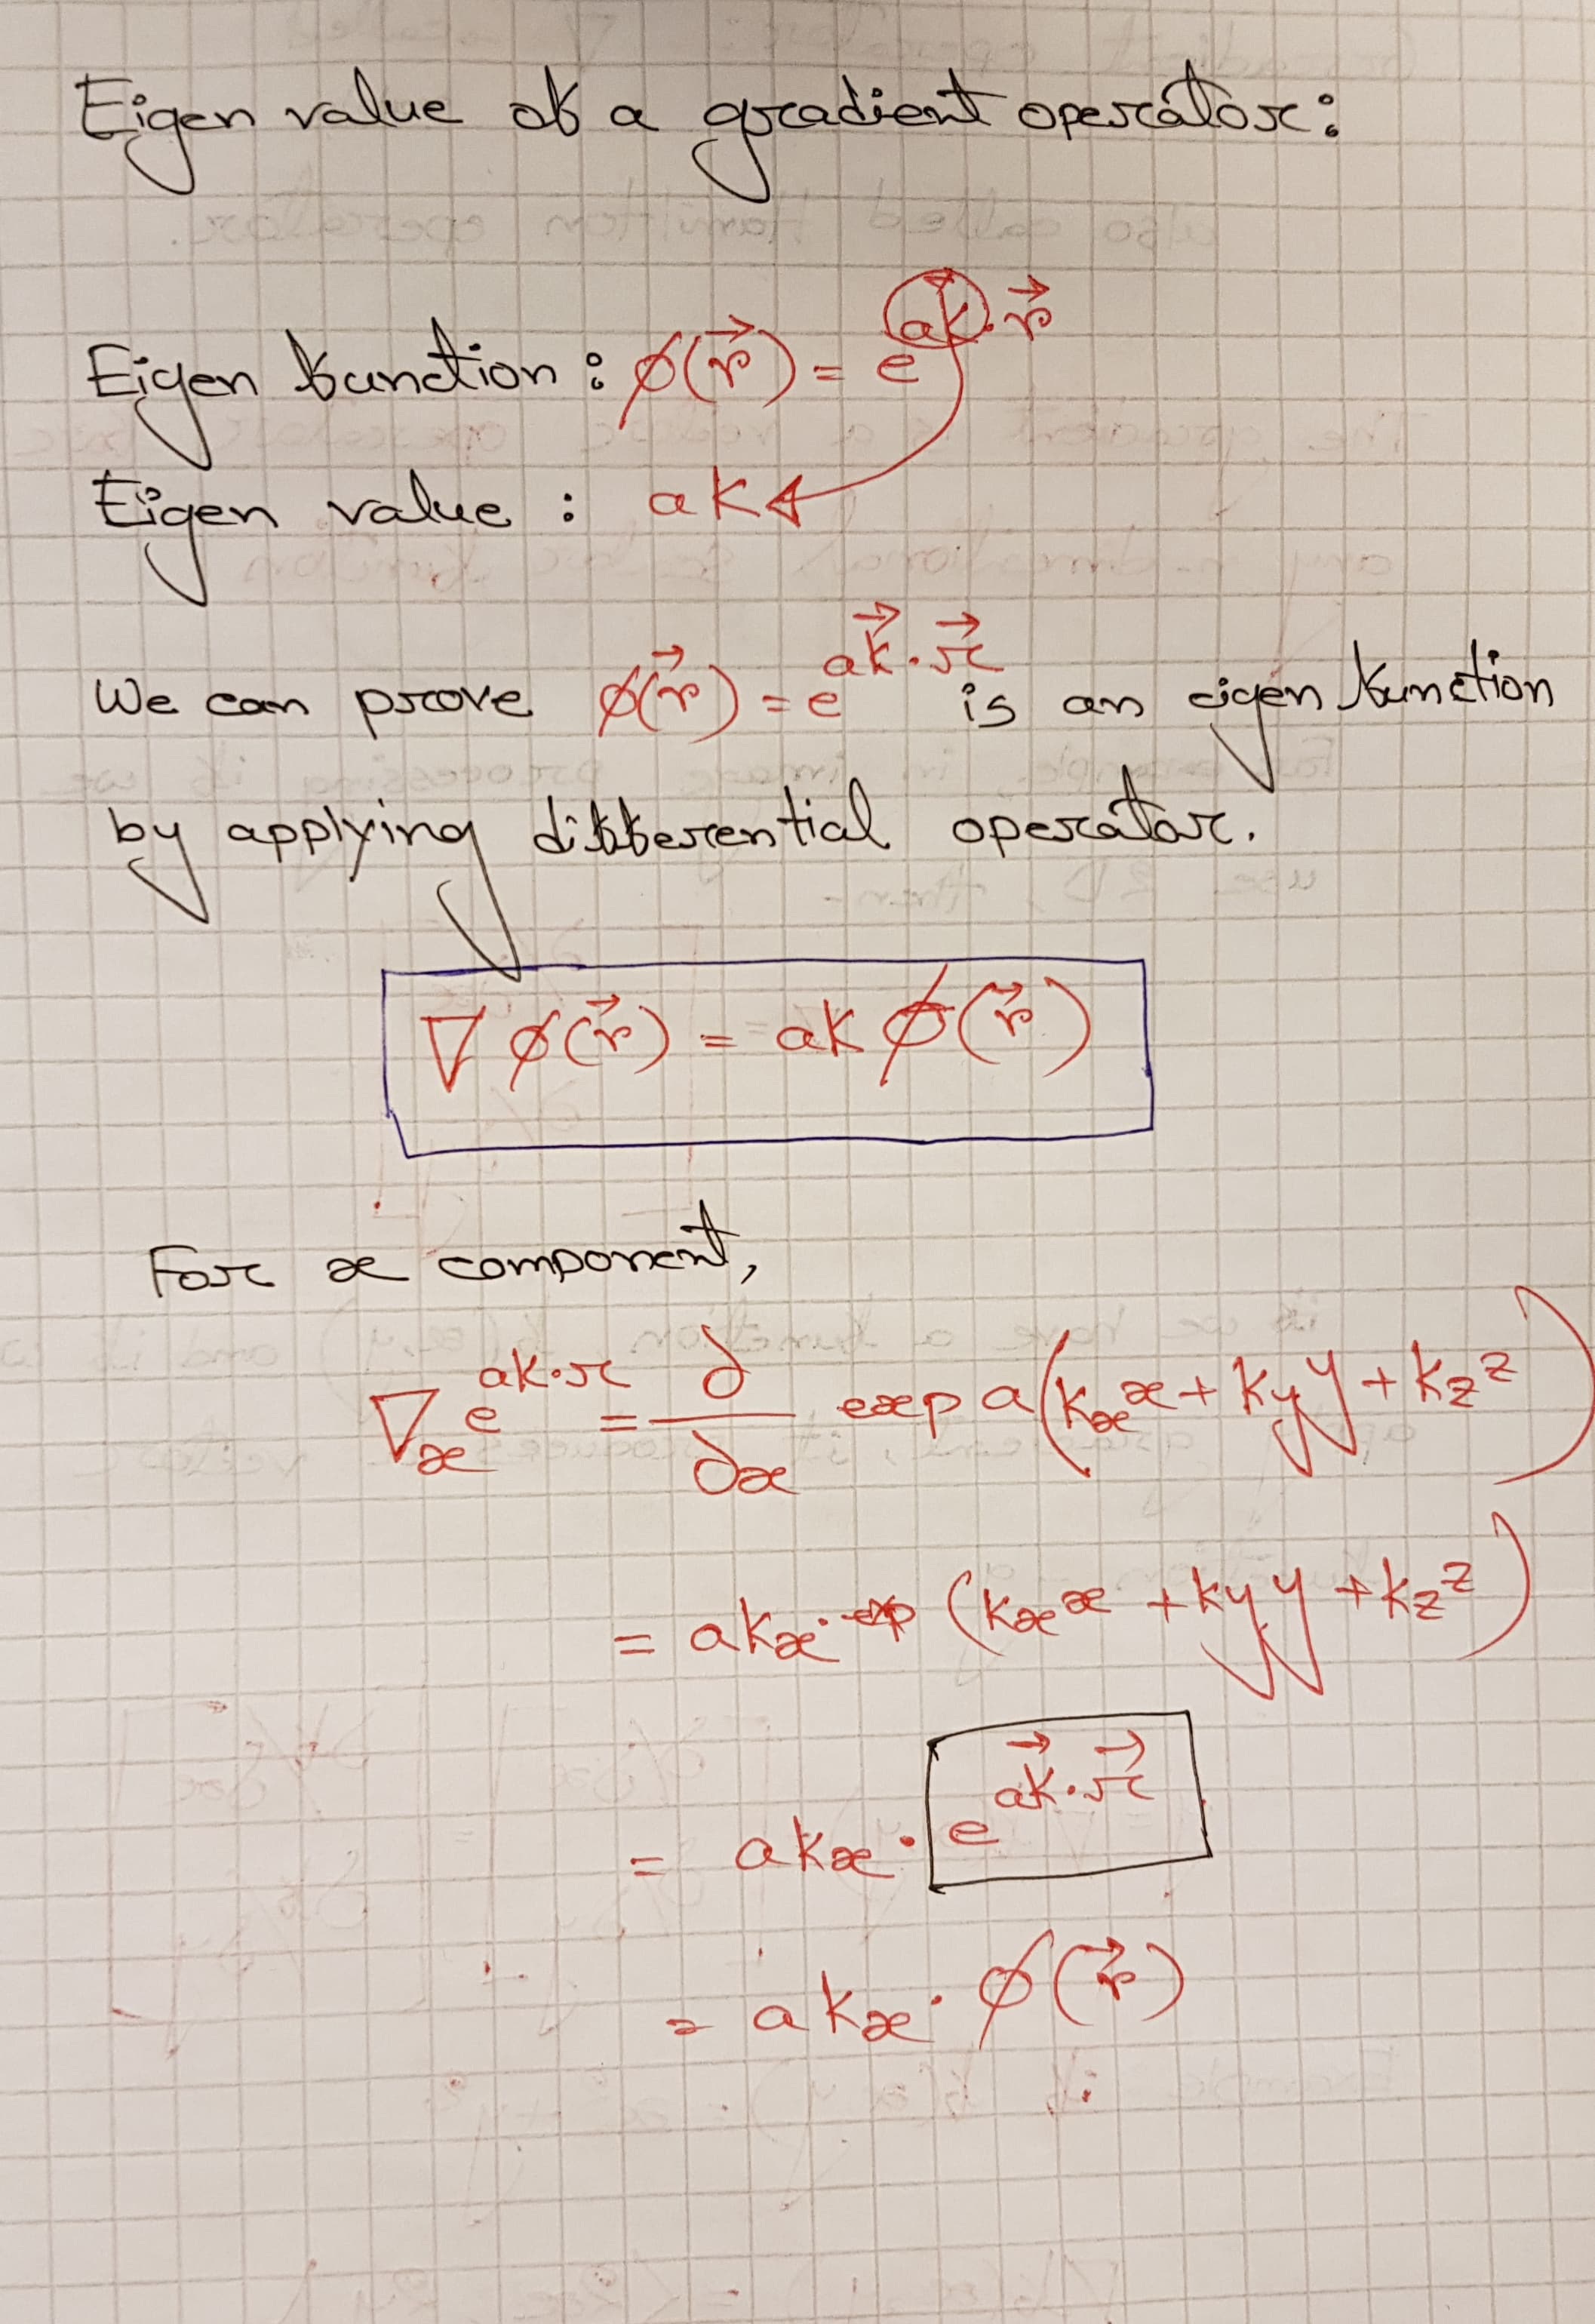 Eigen value of a gradient operator:
Eigen function : φ(r⃗) = e^{ak⃗·r⃗}
Eigen value : ak
We can prove φ(r⃗) = e^{ak⃗·r⃗} is an eigen function
by applying differential operator.
∇ φ(r⃗) = ak φ(r⃗)
For x component,
∇ₓ e^{ak·r} = ∂/∂x exp a(kₓx + k_y y + k_z z)
= akₓ · exp (kₓx + k_y y + k_z z)
= akₓ · e^{ak⃗·r⃗}
= akₓ · φ(r⃗)